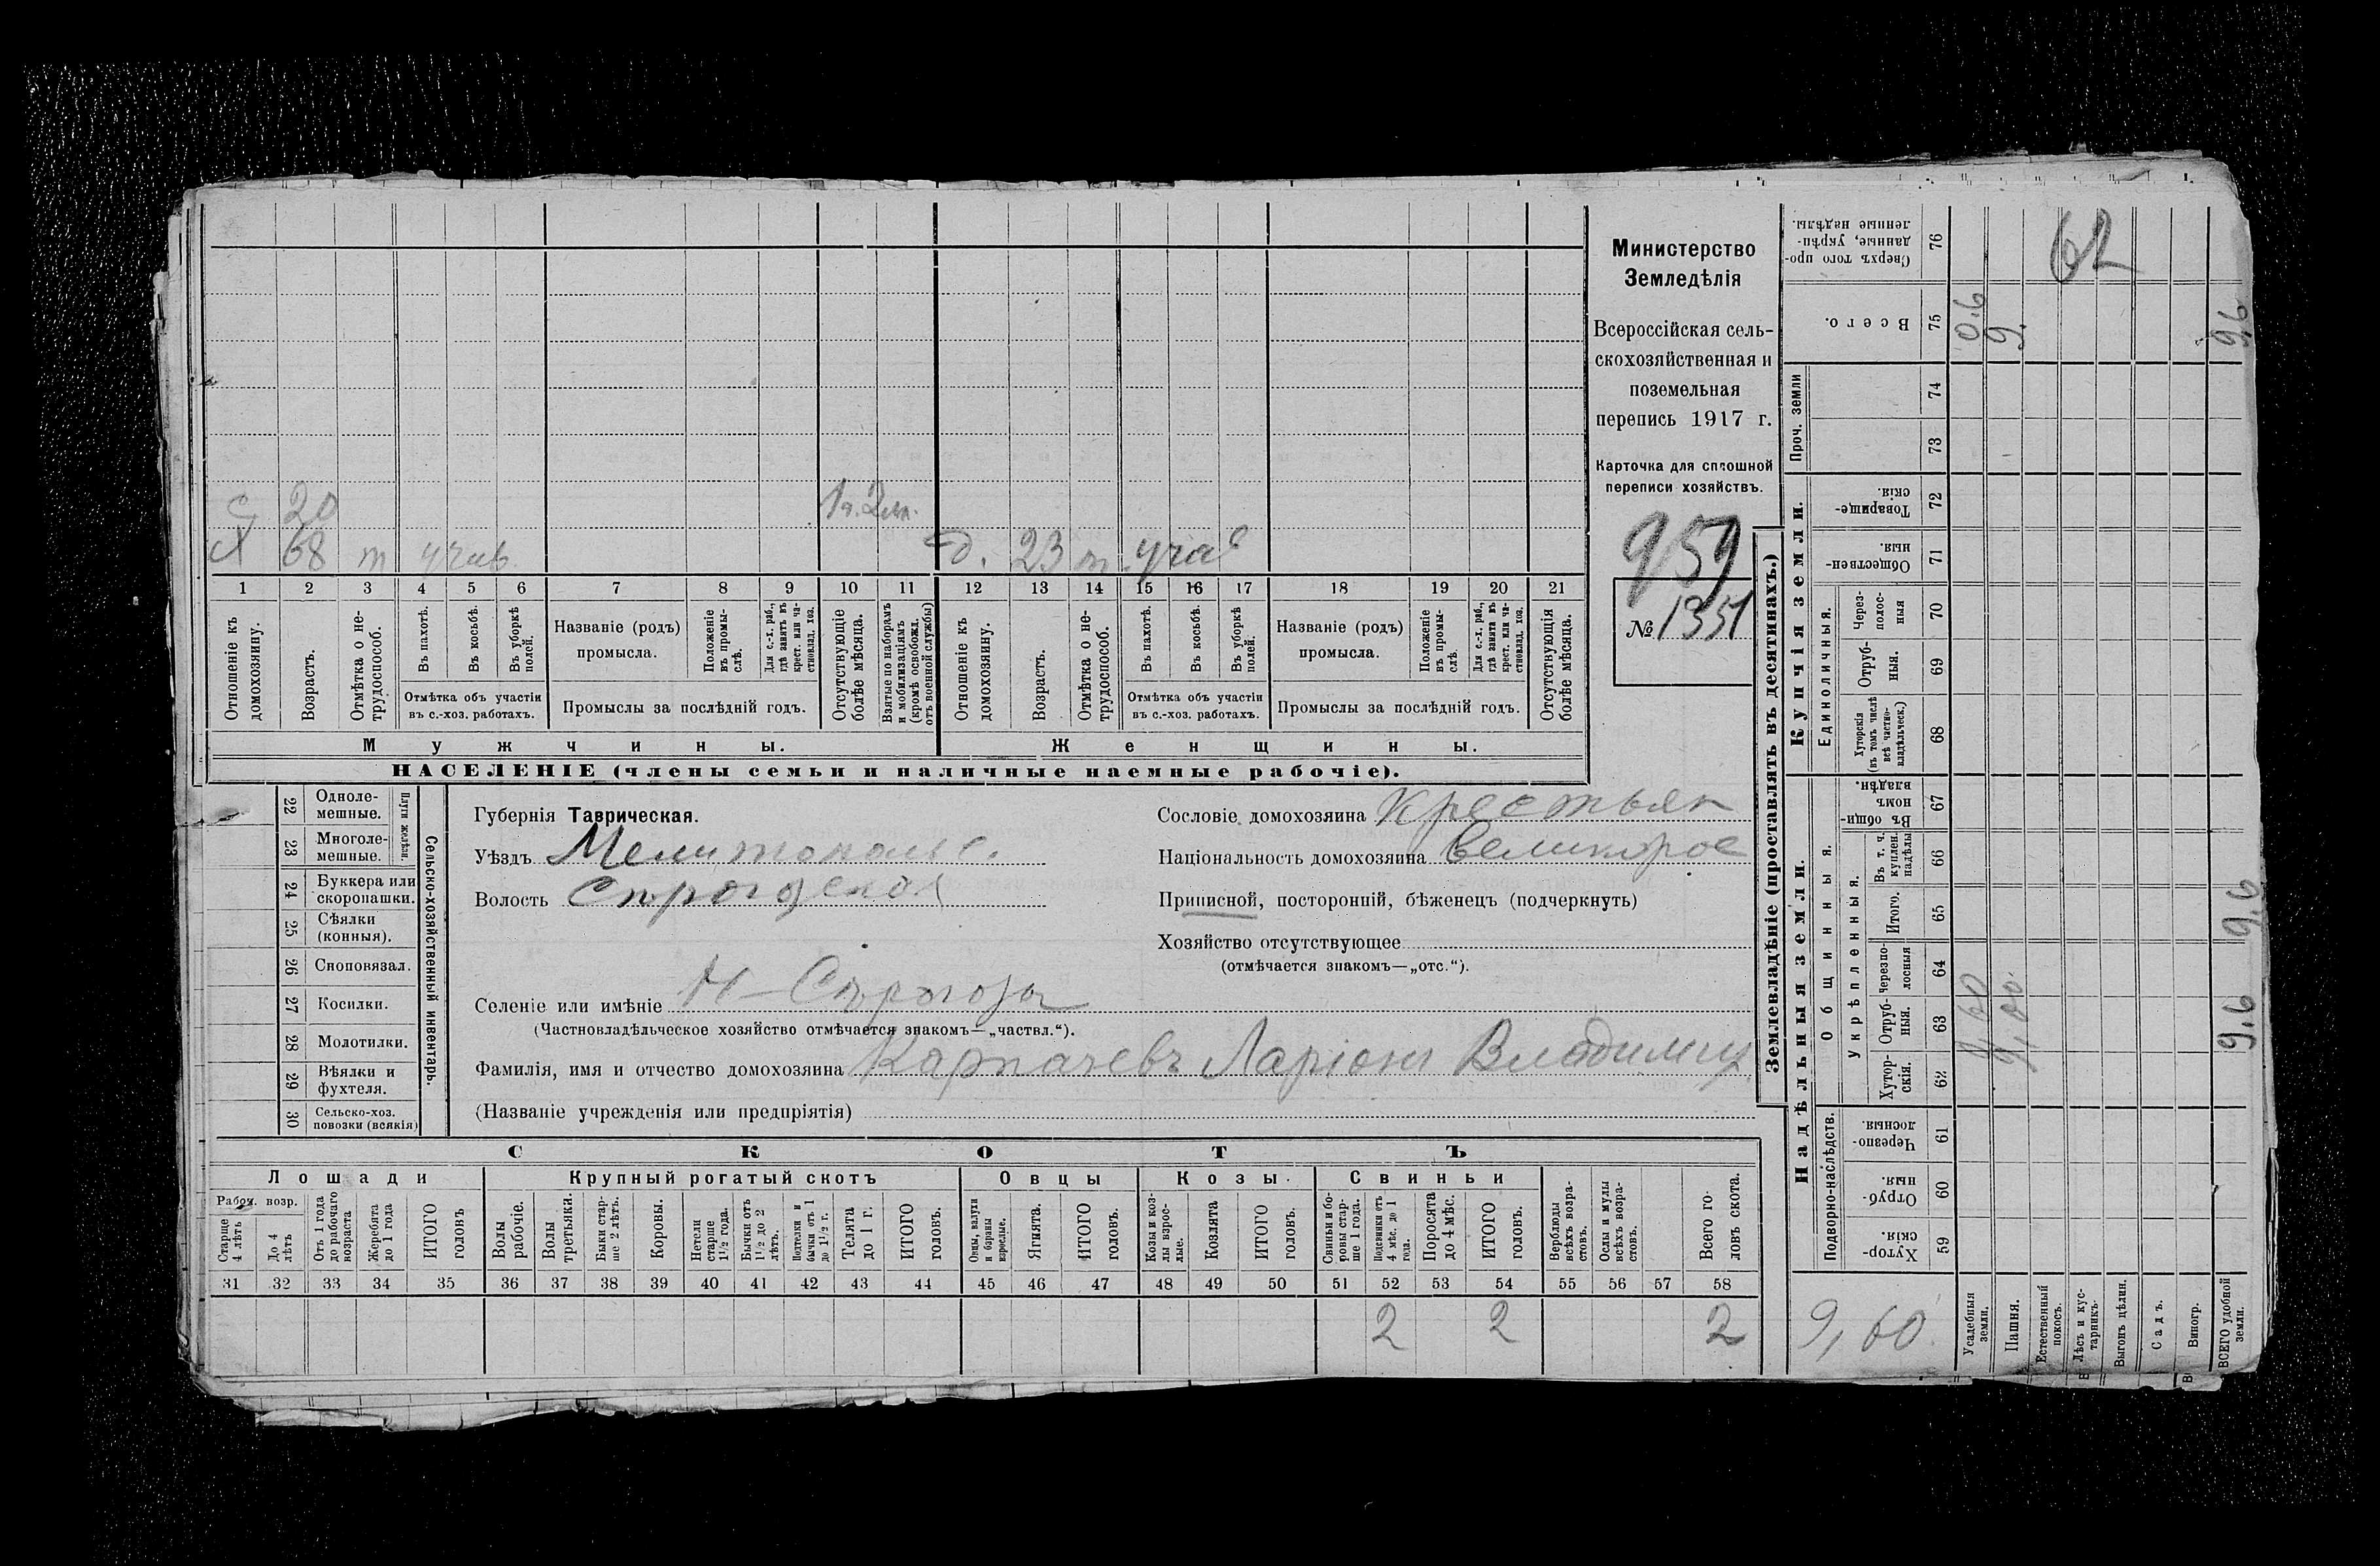 с 20 1 г. 2 м.
Х 68 т учав. д. 23 т. учав
1 2 3 4 5 6 7 8 9 10 11 12 13 14 15 16 17 18 19 20 21
Отношеніе къ домохозяину.
Возрастъ.
Отмѣтка о не-трудоспособ.
Въ пахотѣ.
Въ косьбѣ.
Въ уборкѣ полей.
Отмѣтка объ участіи
въ с.-хоз. работахъ.
Названіе (родъ)
промысла.
Положеніе въ промы-слѣ.
Для с.-х. раб., гдѣ занятъ въ крест. или ча-стновлад. хоз.
Промыслы за послѣдній годъ.
Отсутствующіе болѣе мѣсяца.
Взятые по наборамъ и мобилизаціямъ (кромѣ освобожд. отъ военной службы)
Отношеніе къ домохозяину.
Возрастъ.
Отмѣтка о не-трудоспособ.
Въ пахотѣ.
Въ косьбѣ.
Въ уборкѣ полей.
Отмѣтка объ участіи
въ с.-хоз. работахъ.
Названіе (родъ)
промысла.
Положеніе въ промы-слѣ.
Для с.-х. раб., гдѣ занята въ крест. или ча-стновлад. хоз.
Промыслы за послѣдній годъ.
Отсутствующія болѣе мѣсяца.
Мужчины. Женщины.
НАСЕЛЕНІЕ (члены семьи и наличные наемные рабочіе).
Министерство
Земледѣлія
Всероссійская сель-
скохозяйственная и
поземельная
перепись 1917 г.
Карточка для сплошной
переписи хозяйствъ.
959
№ 1351
Сельско-хозяйственный инвентарь.
Плуги желѣзн.
22 Одноле-мешные.
23 Многоле-мешные.
24 Буккера или скоропашки.
25 Сѣялки (конныя).
26 Сноповязал.
27 Косилки.
28 Молотилки.
29 Вѣялки и фухтеля.
30 Сельско-хоз. повозки (всякія)
Губернія Таврическая.
Уѣздъ Мелитопольс.
Волость
Селеніе или имѣніе Н-Сѣрогозы
(Частновладѣльческое хозяйство отмѣчается знакомъ—„частвл.“).
Фамилія, имя и отчество домохозяина Карпачевъ Ларіонъ Владимир
(Названіе учрежденія или предпріятія)
Сословіе домохозяина Крестьян
Національность домохозяина Великорос
Приписной, посторонній, бѣженецъ (подчеркнуть)
Хозяйство отсутствующее
(отмѣчается знакомъ—„отс.“).
СКОТЪ
Лошади Крупный рогатый скотъ Овцы Козы. Свиньи
Рабоч. возр.
Старше 4 лѣтъ
До 4 лѣтъ
Отъ 1 года до рабочаго возраста
Жеребята до 1 года
ИТОГО головъ
Волы рабочіе.
Волы третьяки.
Быки стар-ше 2 лѣтъ.
Коровы.
Нетели старше 1½ года.
Бычки отъ 1½ до 2 лѣтъ.
Нетелки и бычки отъ 1 до 1½ г.
Телята до 1 г.
ИТОГО головъ.
Овцы, валухи и бараны взрослые.
Ягнята.
ИТОГО головъ.
Козы и коз-лы взрос-лые.
Козлята
ИТОГО головъ.
Свиньи и бо-ровы стар-ше 1 года.
Подсвинки отъ 4 мѣс. до 1 года.
Поросята до 4 мѣс.
ИТОГО головъ.
Верблюды всѣхъ возра-стовъ.
Ослы и мулы всѣхъ возра-стовъ.
Всего го-ловъ скота.
31 32 33 34 35 36 37 38 39 40 41 42 43 44 45 46 47 48 49 50 51 52 53 54 55 56 57 58
2 2 2
Землевладѣніе (проставлять въ десятинахъ.)
Надѣльныя земли. Купчія земли. Проч. земли
Подворно-наслѣдств. Общинныя. Единоличныя.
Укрѣпленныя.
Хутор-скія. 59
Отруб-ныя. 60
Черезпо-лосныя. 61
Хутор-скія. 62
Отруб-ныя. 63
Черезпо-лосныя 64
Итого. 65
Въ т. ч. куплен. надѣлы 66
Въ общи-номъ владѣн. 67
Хуторскія (въ томъ числѣ всѣ частно-владѣльческ.) 68
Отруб-ныя. 69
Через-полос-ныя 70
Обществен-ныя. 71
Товарище-скія. 72
73
74
Всего. 75
Сверхъ того про-данные, укрѣп-ленные надѣлы. 76
9,60
Усадебныя земли. 0,60 0.6
Пашня. 9,00. 9.
Естественный покосъ.
Лѣсъ и кус-тарникъ.
Выгонъ цѣлин.
Садъ.
Виногр.
ВСЕГО удобной земли. 9,6 9,6 9,6
62